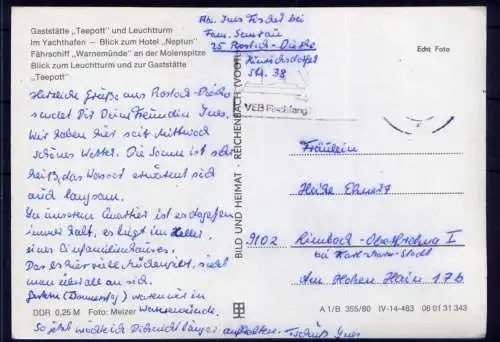 Gaststätte „Teepott" und Leuchtturm
Im Yachthafen – Blick zum Hotel „Neptun"
Fährschiff „Warnemünde" an der Molenspitze
Blick zum Leuchtturm und zur Gaststätte
„Teepott"
Abs. Ines bei
Fam.
25 Rostock-
Str. 38
Echt Foto
VEB
Herzliche Grüße aus Rostock-
sendet Dir Deine Freundin Ines.
Wir haben hier seit Mittwoch
schönes Wetter. Die Sonne ist sehr
heiß, das Wasser erwärmt sich
auch langsam.
In unserem Quartier ist es dagegen
immer kalt, es liegt im Keller
eines Einfamilienhauses.
Das es hier viele Mücken gibt, sieht
man überall an sich.
Gestern (Donnerstag) waren wir in
Warnemünde.
So jetzt möchte ich Dich nicht länger aufhalten. Tschüß Ines
BILD UND HEIMAT · REICHENBACH (VOGTL
Fräulein
Heide
9102 Limbach-Oberfrohna I
bei Karl-Marx-Stadt
Am Hohen Hain 17b
DDR 0,25 M Foto: Melzer
A 1/B 355/80 IV-14-483 06 01 31 343